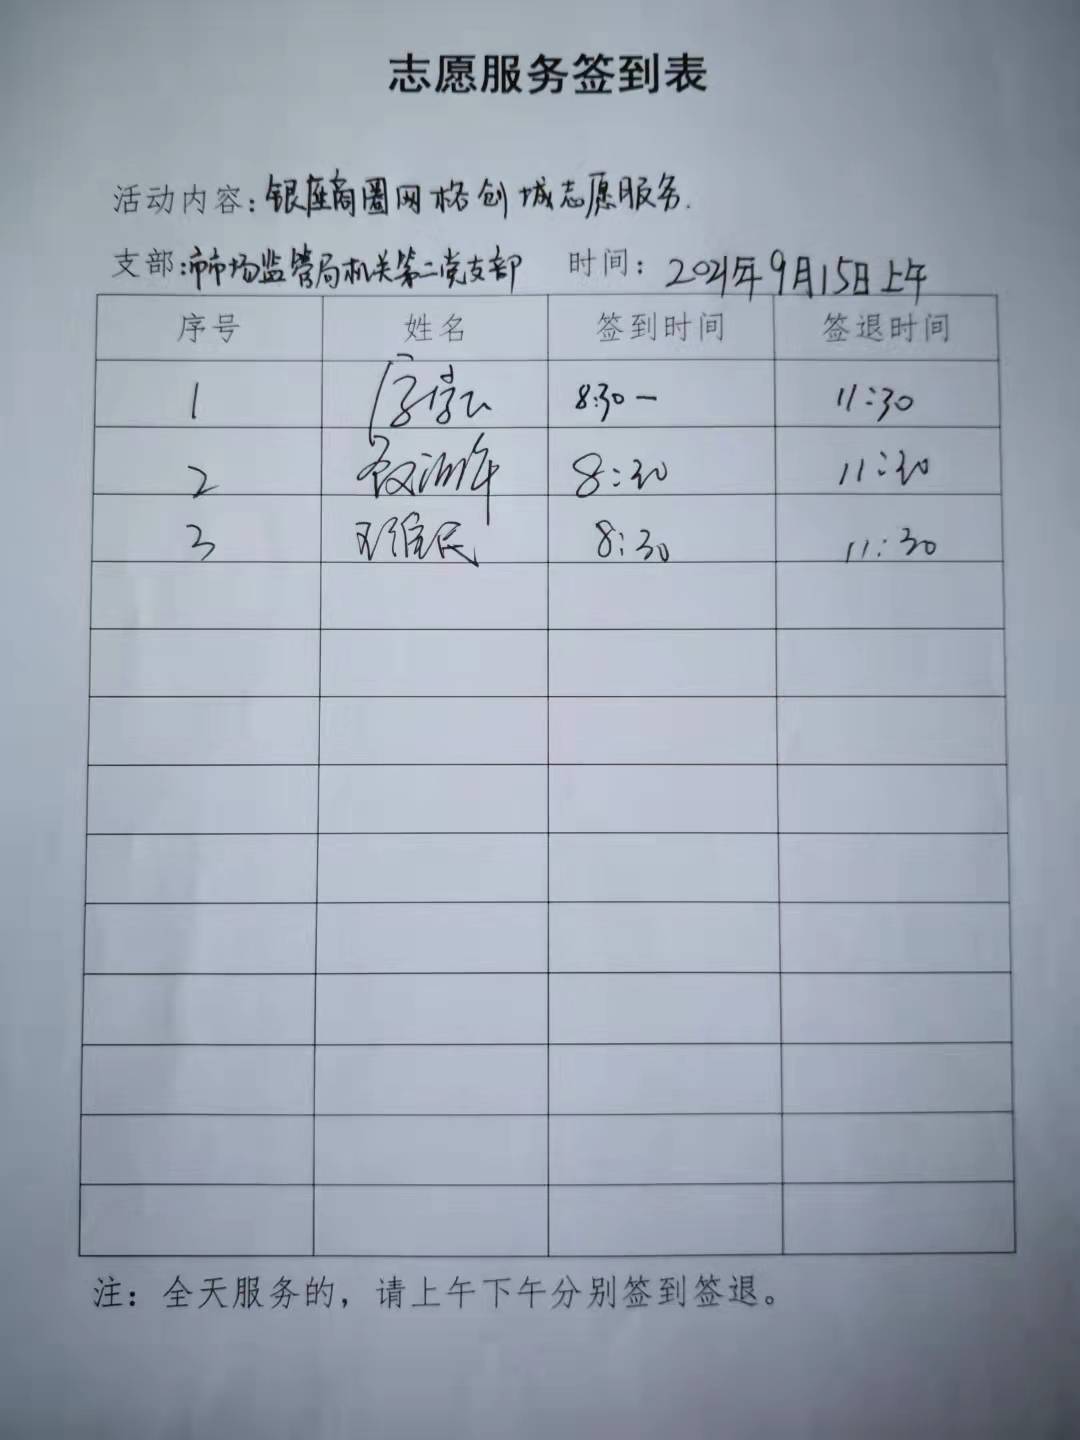 志愿服务签到表
活动内容：银座商圈网格创城志愿服务.
支部：市市场监管局机关第二党支部 时间：2021年9月15日上午
序号 姓名 签到时间 签退时间
1 8:30一 11:30
2 8:30 11:30
3 8:30 11:30
注：全天服务的，请上午下午分别签到签退。